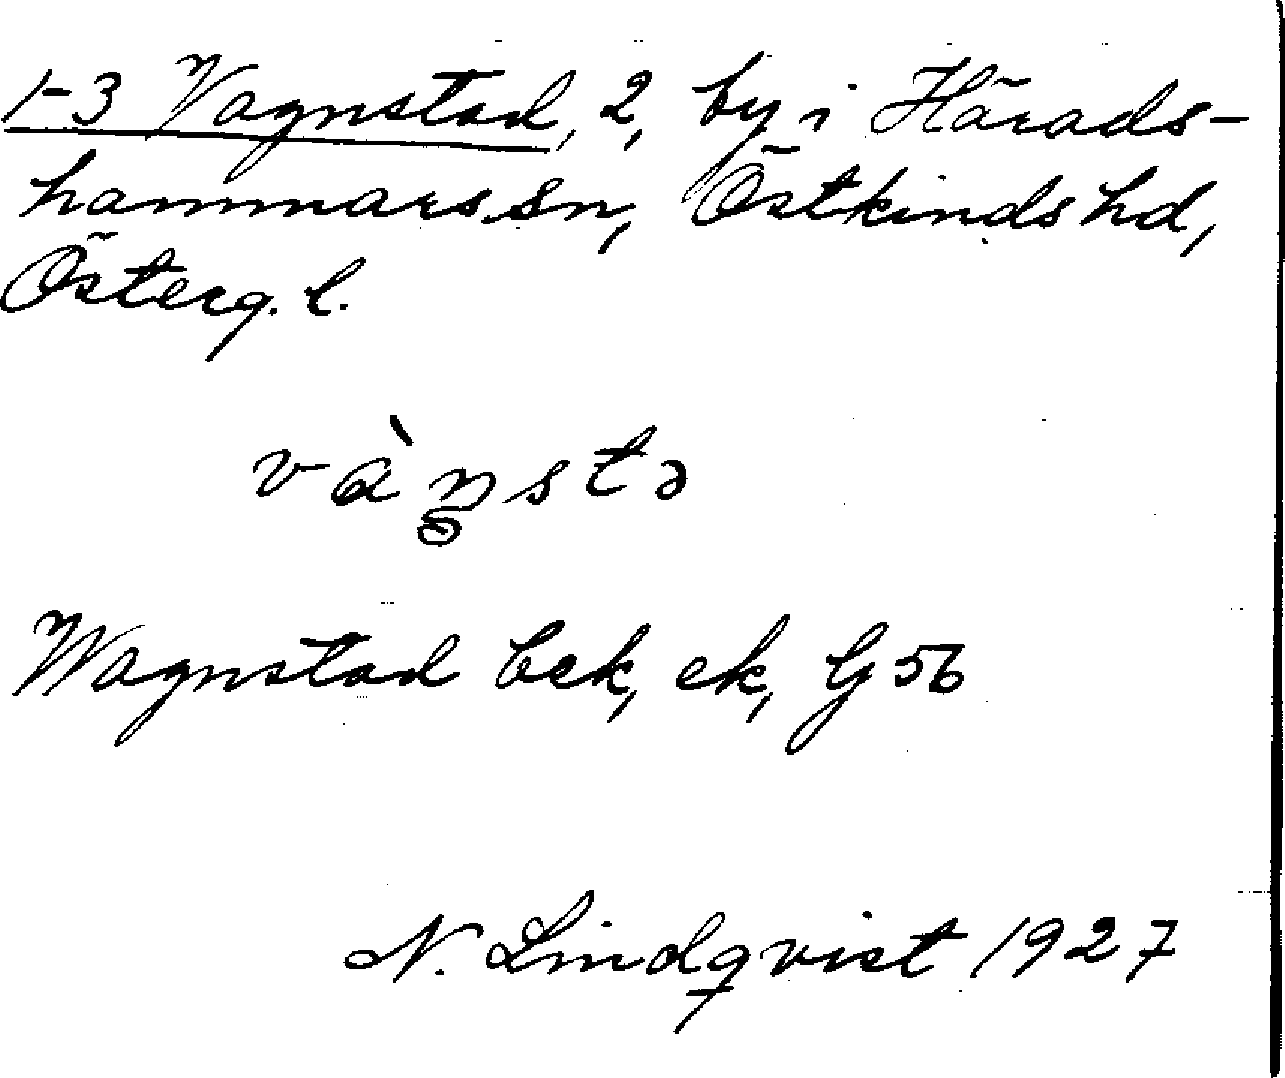 1-3 Vagnstad, 2, by i Härads-
hammars sn, Östkinds hd,
Österg. l.
và ŋ̥stə
Wagnstad bek, ek, G 56
N. Lindqvist 1927